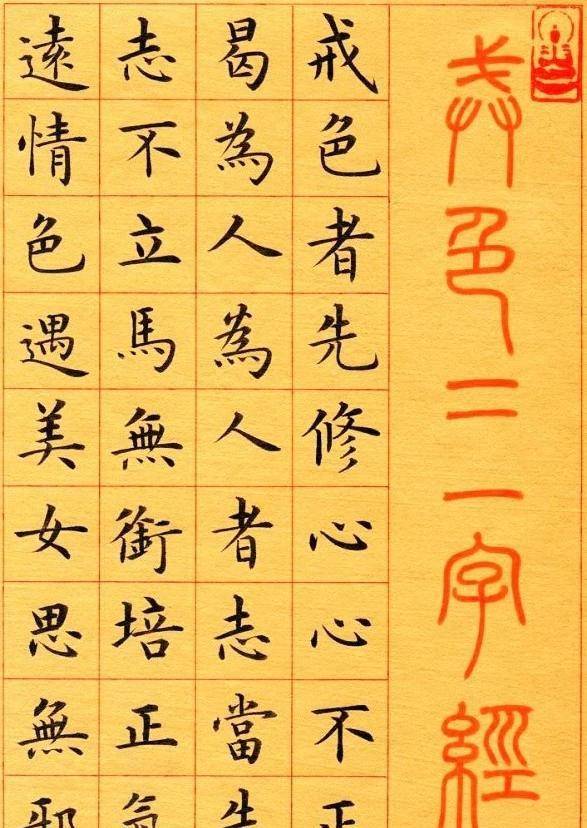 戒色二一字經
戒色者先修心心不正
曷為人為人者志當
志不立馬無銜培正氣
遠情色遇美女思無邪